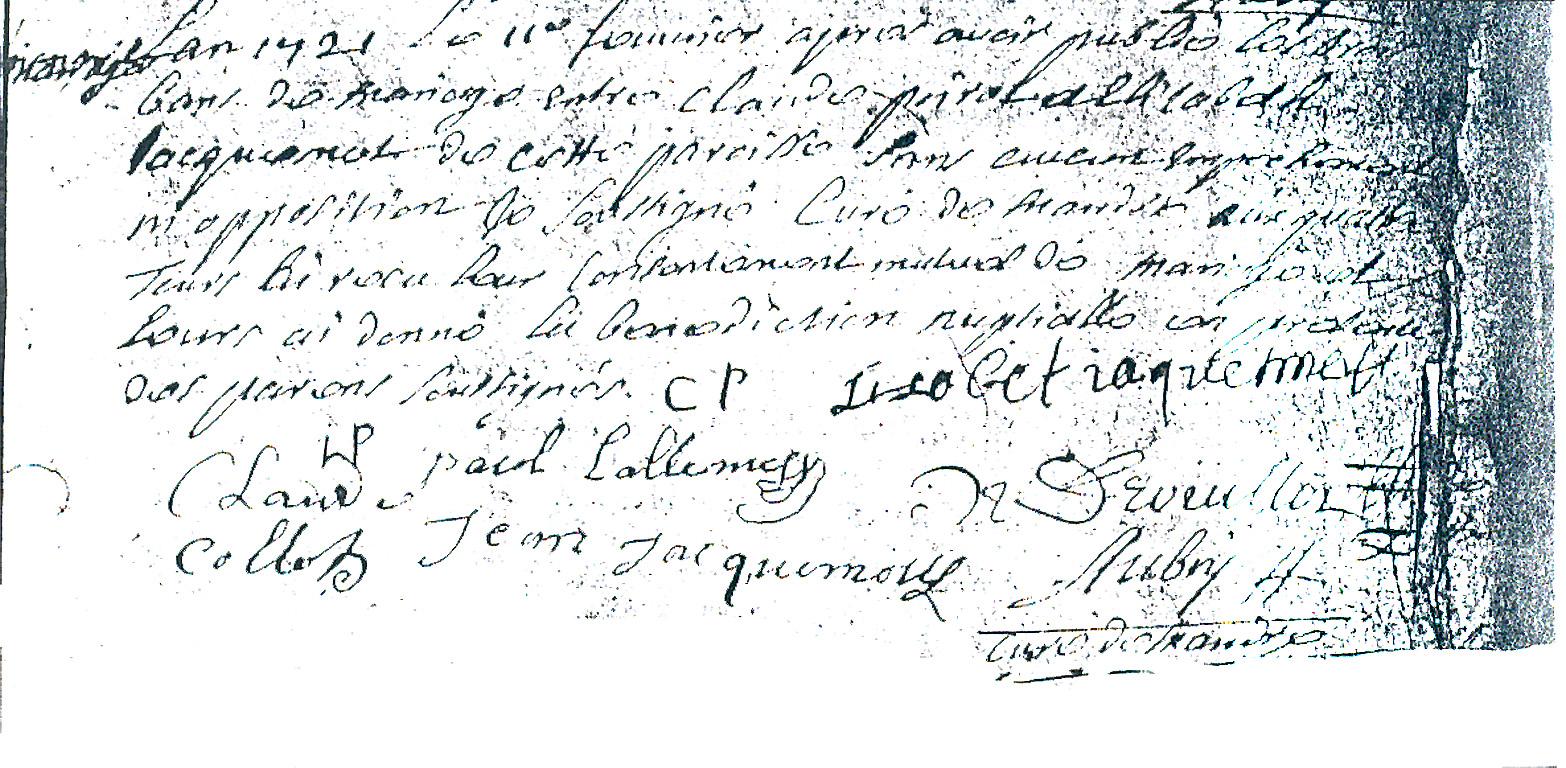 mariage
Lan 1721 Le 11e fevrier apres avoir publié les trois
bans de mariage entre Claude pierot et Elisabeth
Jacquemot de cette paroisse sans aucun empechement
ni opposition Je soussigné Curé de Mandre aux quatre
Tours hi recu leur consentement mutuel de mariage et
Leurs ai donné la benediction nuptialle en presence
des parens soussignés. C P Lisabet iaquemet
HP
Claude paul Lallement N Devoillot
Collot Jean Jacquemot Aubry
curé de Mandre